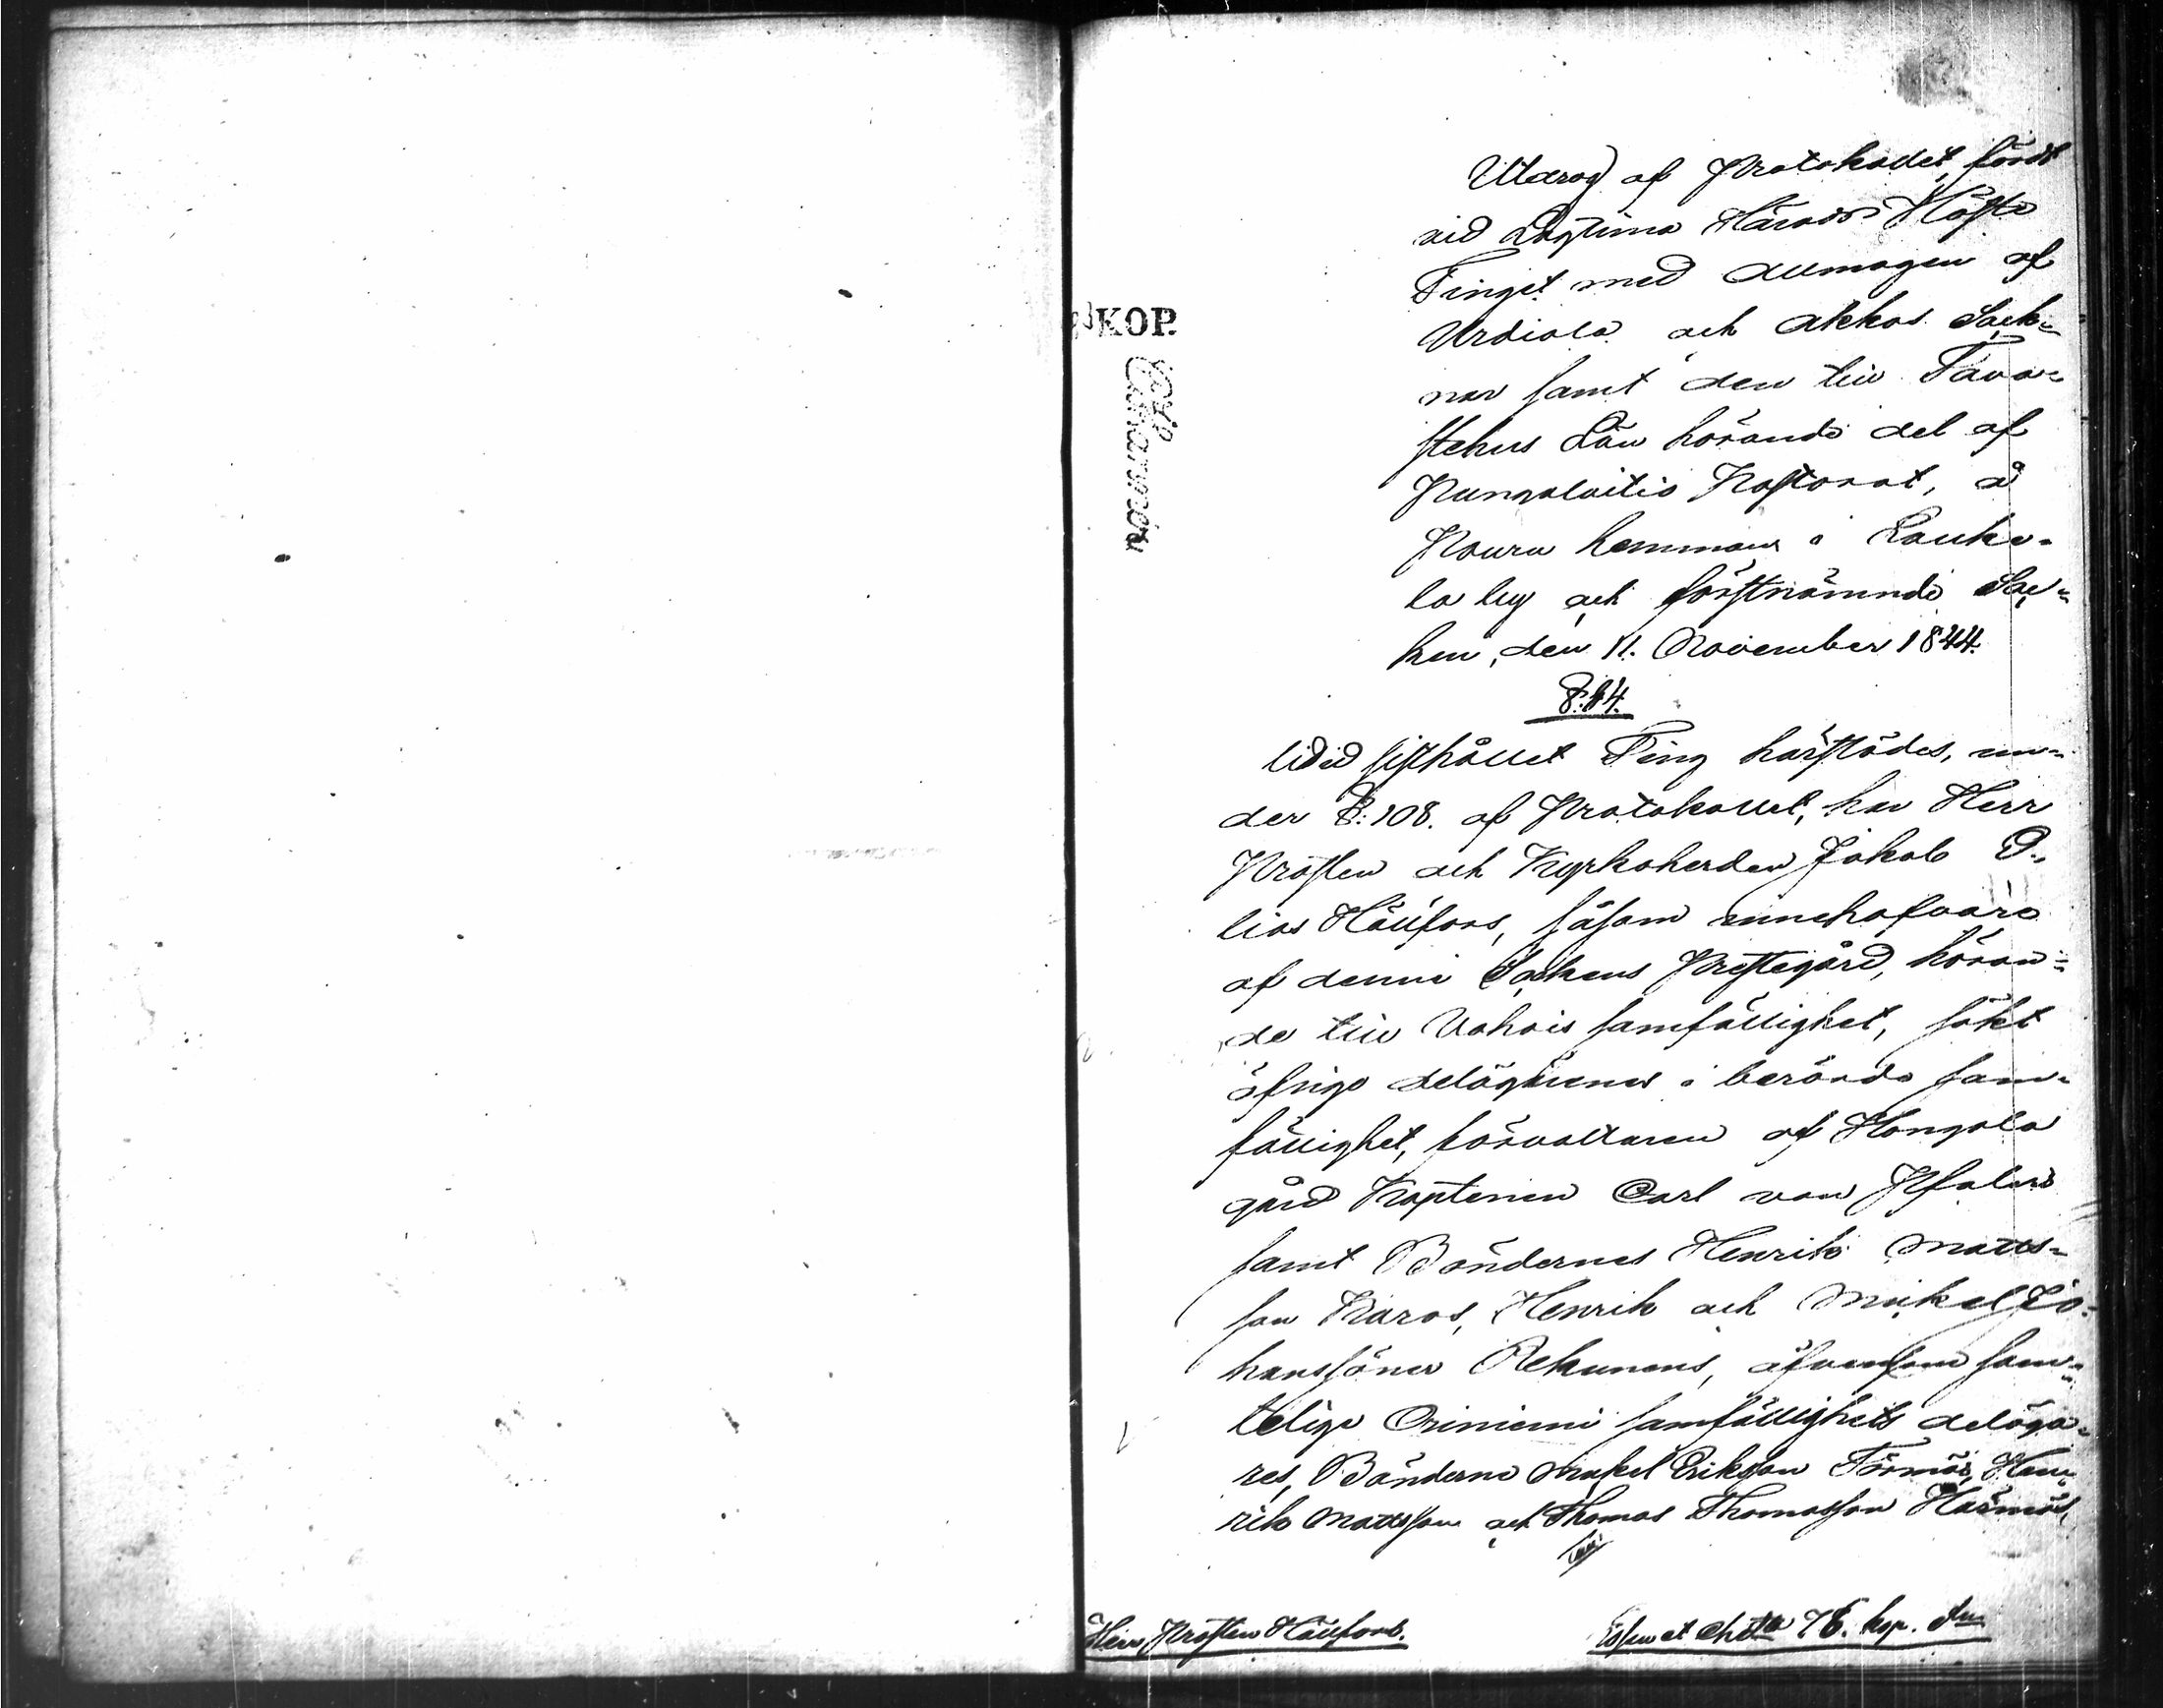 Utdrag af Protokollet, fördt
vid Lagtima Härads Höste
Tinget med Allmogen af
Urdiala och Akkas Sock-
nar samt den till Tava-
stehus Län hörande del af
Pungalaitio Pastorat, å
Nouru hemman i Lauke-
la by och förstnämnde Soc-
ken, den 11. November 1844.
§: 44.
Vid sisthållet Ting härstädes, un-
der §: 108. af Protokollet, har Herr
Prosten och Kyrkoherden Jakob E-
lias Hällfors, såsom innehafvare
af denne Sockens Prestegård, höran-
de till Vahois samfällighet, sökt
öfrige delägarene i berörde sam-
fällighet, förvaltaren af Hongola
gård Kaptenen Carl von Pfaler
samt Bönderne Henrik Matts-
son Naros, Henrik och Mickel Jo-
hanssöner Rekunens, äfvensom sam-
telige Oriniemi samfällighets deläga-
res, Bönderne Mickel Eriksson Törmäs, Hen-
rik Mattsson och Thomas Thomasson Härmäs,
Herr Prosten Hällfors.
78. kop. Srn
KOP.